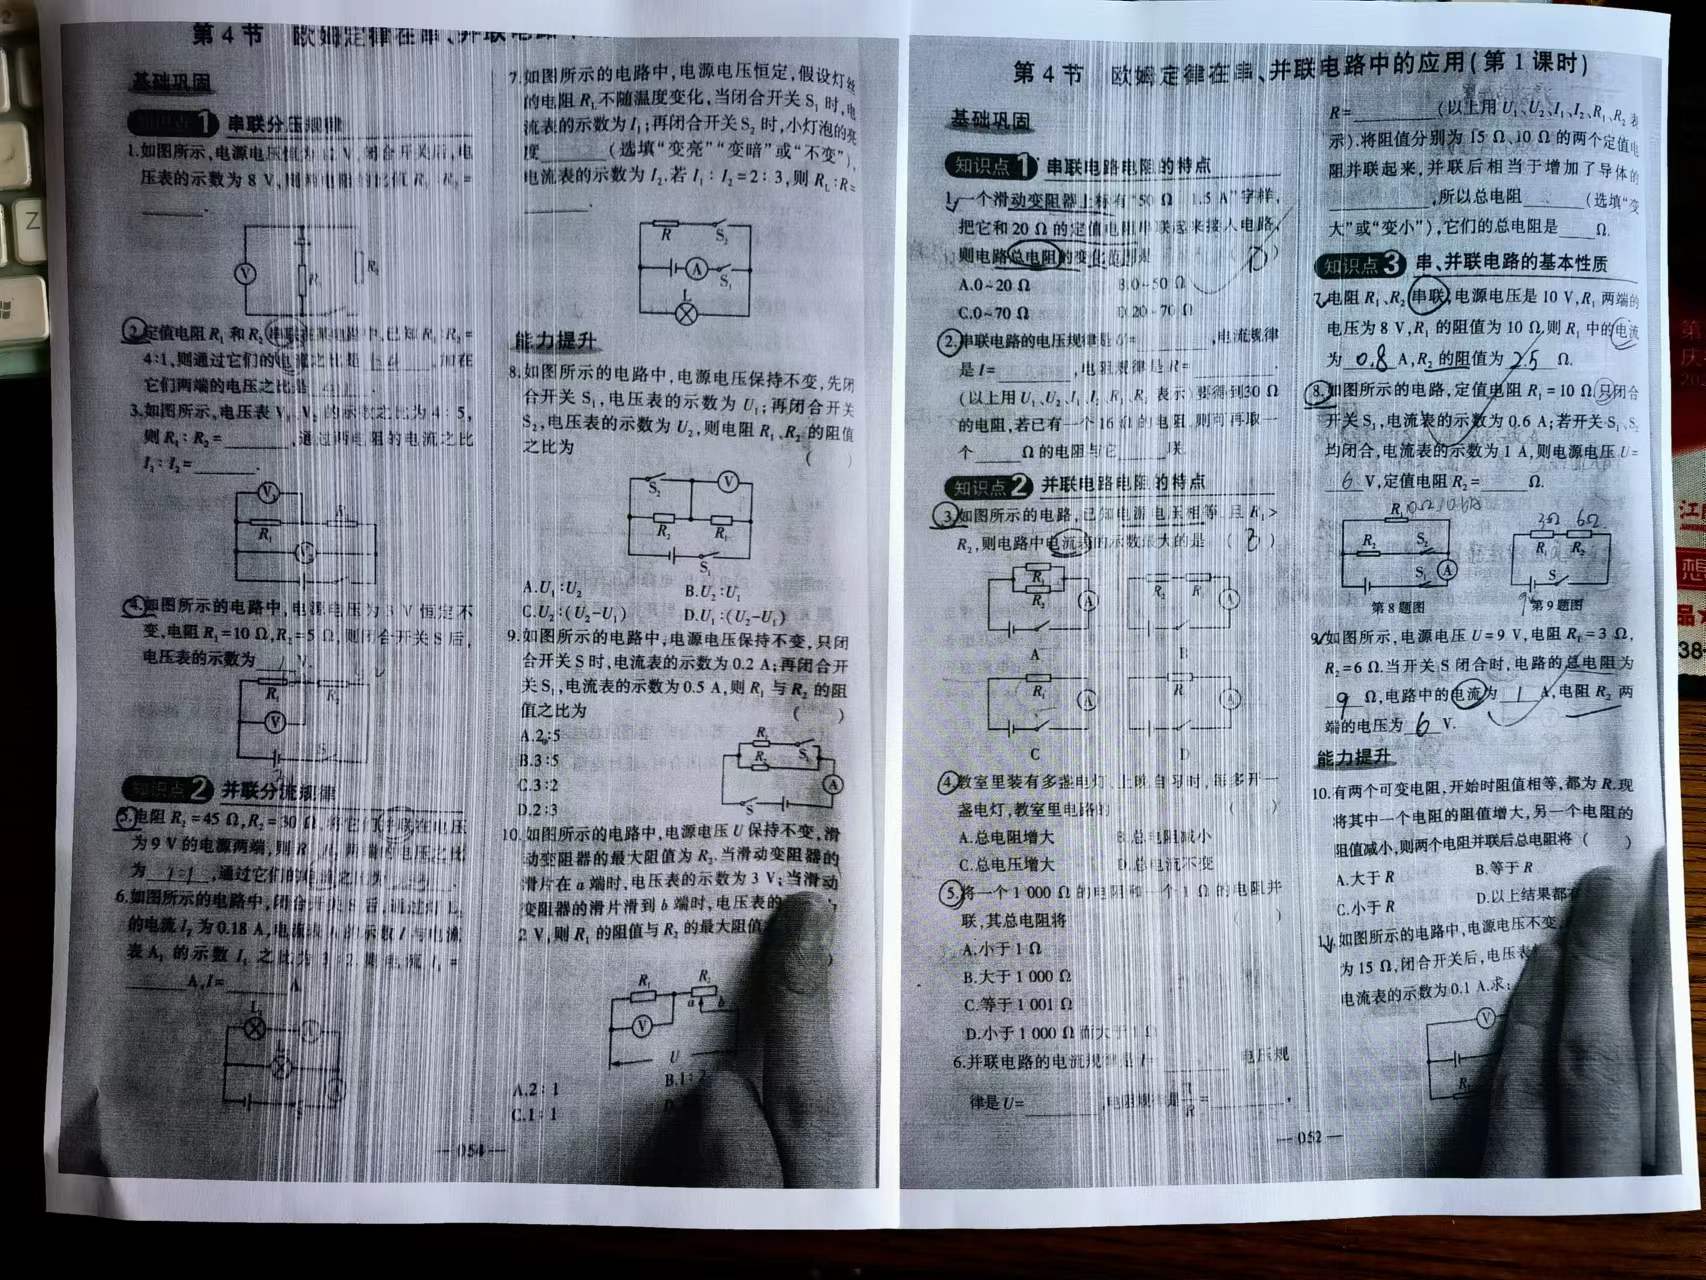 第4节 欧姆定律在串、并联电路
基础巩固
知识点1 串联分压规律
1.如图所示,电源电压恒为12 V,闭合开关后,电
压表的示数为8 V,则两电阻的比值R₁:R₂=
2.定值电阻R₁和R₂串联在电路中,已知R₁:R₂=
4:1,则通过它们的电流之比是 ,加在
它们两端的电压之比是
3.如图所示,电压表V₁、V₂的示数之比为4:5,
则R₁:R₂= ,通过两电阻的电流之比
I₁:I₂= .
V₂
R₁
4.如图所示的电路中,电源电压为3 V恒定不
变,电阻R₁=10 Ω,R₂=5 Ω,则闭合开关S后,
电压表的示数为 V.
R₁ R₂
V
知识点2 并联分流规律
5.电阻R₁=45 Ω,R₂=30 Ω,将它们并联在电压
为9 V的电源两端,则R₁、R₂两端的电压之比
为 1:1 ,通过它们的电流之比为 .
6.如图所示的电路中,闭合开关S后,通过灯L₂
的电流I₂为0.18 A,电流表A的示数I与电流
表A₁的示数I₁之比为3:2.则电流I₁=
A,I= A.
7.如图所示的电路中,电源电压恒定,假设灯丝
的电阻R_L不随温度变化,当闭合开关S₁时,电
流表的示数为I₁;再闭合开关S₂时,小灯泡的亮
度 (选填“变亮”“变暗”或“不变”),
电流表的示数为I₂.若I₁:I₂=2:3,则R_L:R=
.
R S₂
A S₁
L
能力提升
8.如图所示的电路中,电源电压保持不变,先闭
合开关S₁,电压表的示数为U₁;再闭合开关
S₂,电压表的示数为U₂,则电阻R₁、R₂的阻值
之比为 ( )
S₂ V
R₂ R₁
S₁
A.U₁:U₂ B.U₂:U₁
C.U₂:(U₂-U₁) D.U₁:(U₂-U₁)
9.如图所示的电路中,电源电压保持不变,只闭
合开关S时,电流表的示数为0.2 A;再闭合开
关S₁,电流表的示数为0.5 A,则R₁与R₂的阻
值之比为 ( )
A.2:5
B.3:5
C.3:2
D.2:3
R₁ S₁
R₂
A
S
10.如图所示的电路中,电源电压U保持不变,滑
动变阻器的最大阻值为R₂.当滑动变阻器的
滑片在a端时,电压表的示数为3 V;当滑动
变阻器的滑片滑到b端时,电压表的
2 V,则R₁的阻值与R₂的最大阻值
R₁ R₂
a b
V
U
A.2:1 B.1:2
C.1:1
—054—
第4节 欧姆定律在串、并联电路中的应用(第1课时)
基础巩固
知识点1 串联电路电阻的特点
1.一个滑动变阻器上标有“50 Ω 1.5 A”字样,
把它和20 Ω的定值电阻串联起来接入电路,
则电路总电阻的变化范围是 ( D )
A.0~20 Ω B.0~50 Ω
C.0~70 Ω D.20~70 Ω
2.串联电路的电压规律是U= ,电流规律
是I= ,电阻规律是R=
(以上用U₁、U₂、I₁、I₂、R₁、R₂表示).要得到30 Ω
的电阻,若已有一个16 Ω的电阻,则可再取一
个 Ω的电阻与它 联.
知识点2 并联电路电阻的特点
3.如图所示的电路,已知电源电压相等,且R₁>
R₂,则电路中电流表的示数最大的是 ( )
R₁ R₂ A
R₂ R₁ A
A B
R₁ A
R A
C D
4.教室里装有多盏电灯,上晚自习时,每多开一
盏电灯,教室里电路的 ( )
A.总电阻增大 B.总电阻减小
C.总电压增大 D.总电流不变
5.将一个1 000 Ω的电阻和一个1 Ω的电阻并
联,其总电阻将 )
A.小于1 Ω
B.大于1 000 Ω
C.等于1 001 Ω
D.小于1 000 Ω而大于1 Ω
6.并联电路的电流规律是I= 电压规
律是U= ,电阻规律是1/R= ,
R= (以上用U₁、U₂、I₁、I₂、R₁、R₂表
示).将阻值分别为15 Ω、10 Ω的两个定值电
阻并联起来,并联后相当于增加了导体的
,所以总电阻 (选填“变
大”或“变小”),它们的总电阻是 Ω.
知识点3 串、并联电路的基本性质
7.电阻R₁、R₂串联,电源电压是10 V,R₁两端的
电压为8 V,R₁的阻值为10 Ω,则R₁中的电流
为 0.8 A,R₂的阻值为 2.5 Ω.
8.如图所示的电路,定值电阻R₁=10 Ω.只闭合
开关S₁,电流表的示数为0.6 A;若开关S₁、S₂
均闭合,电流表的示数为1 A,则电源电压U=
6 V,定值电阻R₂= Ω.
R₁
R₂ S₂
S₁ A
3Ω 6Ω
R₁ R₂
S
9V
第8题图 第9题图
9.如图所示,电源电压U=9 V,电阻R₁=3 Ω,
R₂=6 Ω.当开关S闭合时,电路的总电阻为
9 Ω,电路中的电流为 1 A,电阻R₂两
端的电压为 6 V.
能力提升
10.有两个可变电阻,开始时阻值相等,都为R.现
将其中一个电阻的阻值增大,另一个电阻的
阻值减小,则两个电阻并联后总电阻将 ( )
A.大于R B.等于R
C.小于R D.以上结果都
11.如图所示的电路中,电源电压不变,
为15 Ω,闭合开关后,电压表
电流表的示数为0.1 A.求:
V
—052—